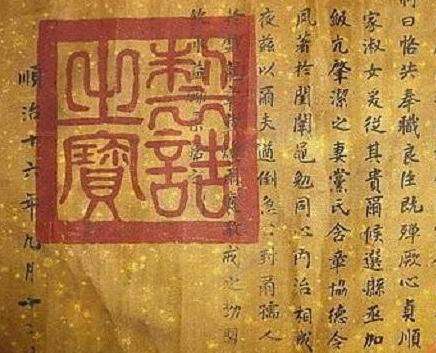 曰恪共奉職良臣既殫厥心貞順
家淑女爰從其貴爾候選縣丞加
級亢肇潔之妻黨氏含章協德令
風著於閨闈黽勉同心內治相成
夜茲以爾夫急公封爾孺人
敬戒之
制誥之寶
順治十六年九月十